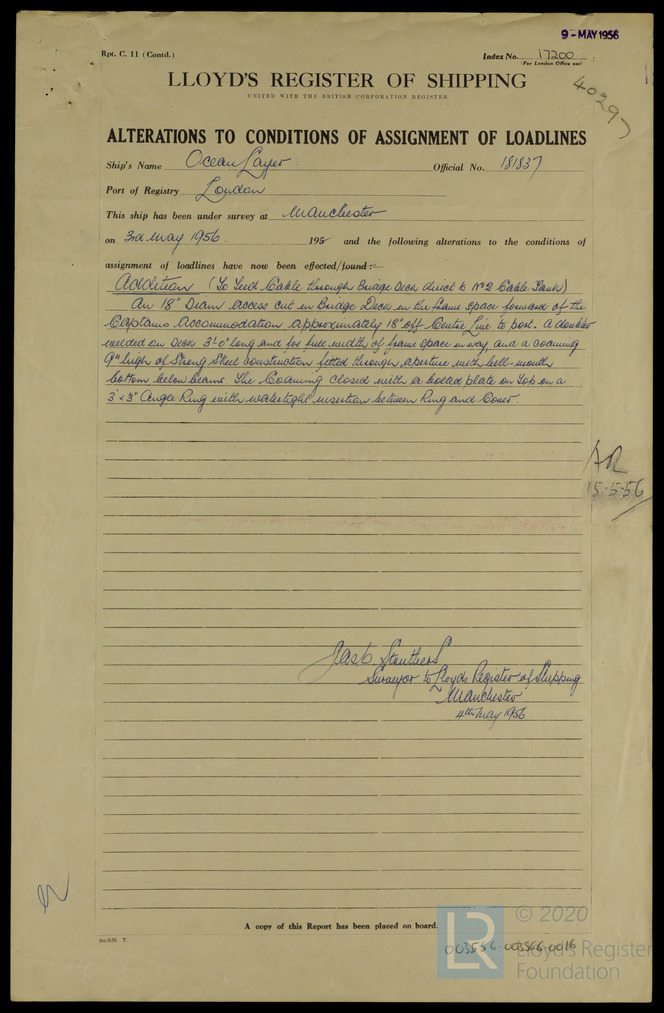 9-MAY 1956
Rpt. C. 11 (Contd.)
Index No. 17200
(For London Office use)
40297
LLOYD'S REGISTER OF SHIPPING
UNITED WITH THE BRITISH CORPORATION REGISTER
ALTERATIONS TO CONDITIONS OF ASSIGNMENT OF LOADLINES
Ship's Name Ocean Layer Official No. 181837
Port of Registry London
This ship has been under survey at Manchester
on 3rd May 1956. 195 and the following alterations to the conditions of
assignment of loadlines have now been effected/found:—
Addition (To Feed Cable through Bridge Deck direct to No 2 Cable Tank)
An 18" Diam access cut in Bridge Deck in the frame space forward of the
Captains Accommodation approximately 18" off Centre Line to port. A doubler
welded on Deck 3'-0" long and for full width of frame space in way, and a coaming
9" high of Strong Steel construction fitted through aperture with bell-mouth
bottom below beams. The Coaming closed with a bolted plate on top on a
3" x 3" Angle Ring with watertight insertion between Ring and Cover.
AR
15-5-56
Surveyor to Lloyds Register of Shipping
Manchester
4th May 1956
A copy of this Report has been placed on board.
003556-003566-0016
LR
© 2020
Lloyd's Register
Foundation